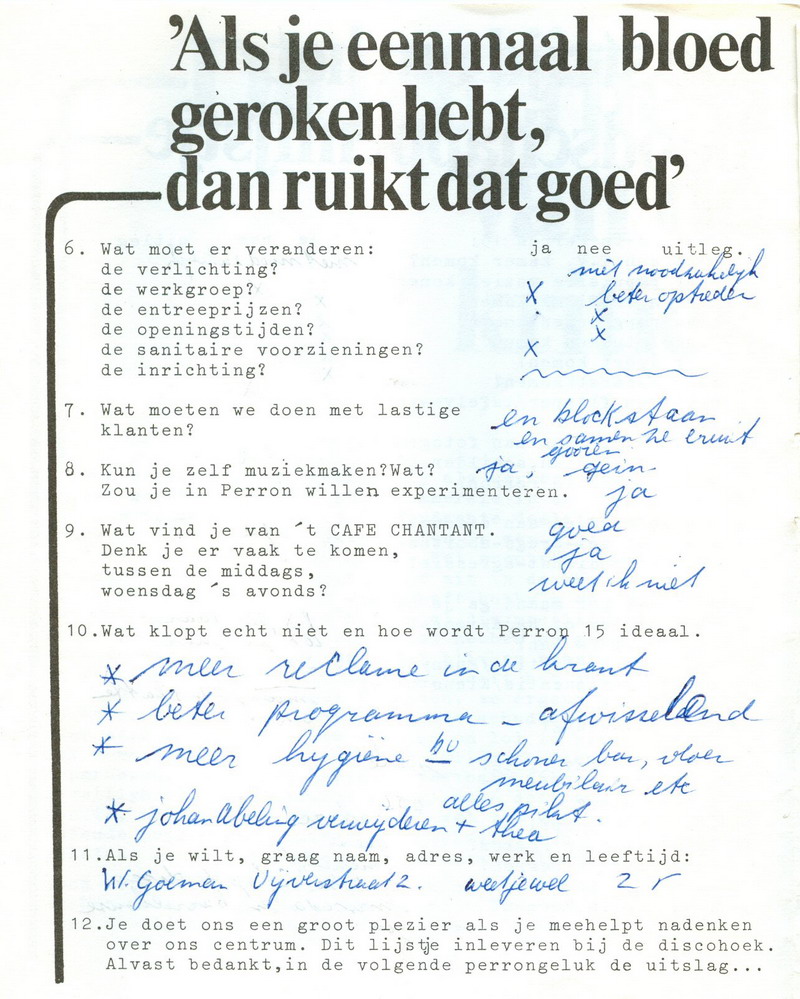 'Als je eenmaal bloed
geroken hebt,
dan ruikt dat goed'
6. Wat moet er veranderen: ja nee uitleg.
de verlichting? niet noodzakelijk
de werkgroep? X beter optreden
de entreeprijzen? x
de openingstijden? x
de sanitaire voorzieningen? x
de inrichting?
7. Wat moeten we doen met lastige en blockstaan
klanten? en samen ze eruit
gooien
8. Kun je zelf muziekmaken?Wat? ja,
Zou je in Perron willen experimenteren. ja
9. Wat vind je van ´t CAFE CHANTANT. goed
Denk je er vaak te komen, ja
tussen de middags,
woensdag ´s avonds? weet ik niet
10.Wat klopt echt niet en hoe wordt Perron 15 ideaal.
* meer reclame in de krant
* beter programma - afwisselend
* meer hygiëne schoner bar, vloer
meubilair etc
alles
* johan Abeling verwijderen + thea
11.Als je wilt, graag naam, adres, werk en leeftijd:
W. Goeman Vijverstraat 2. weetjewel 2
12.Je doet ons een groot plezier als je meehelpt nadenken
over ons centrum. Dit lijstje inleveren bij de discohoek.
Alvast bedankt,in de volgende perrongeluk de uitslag...